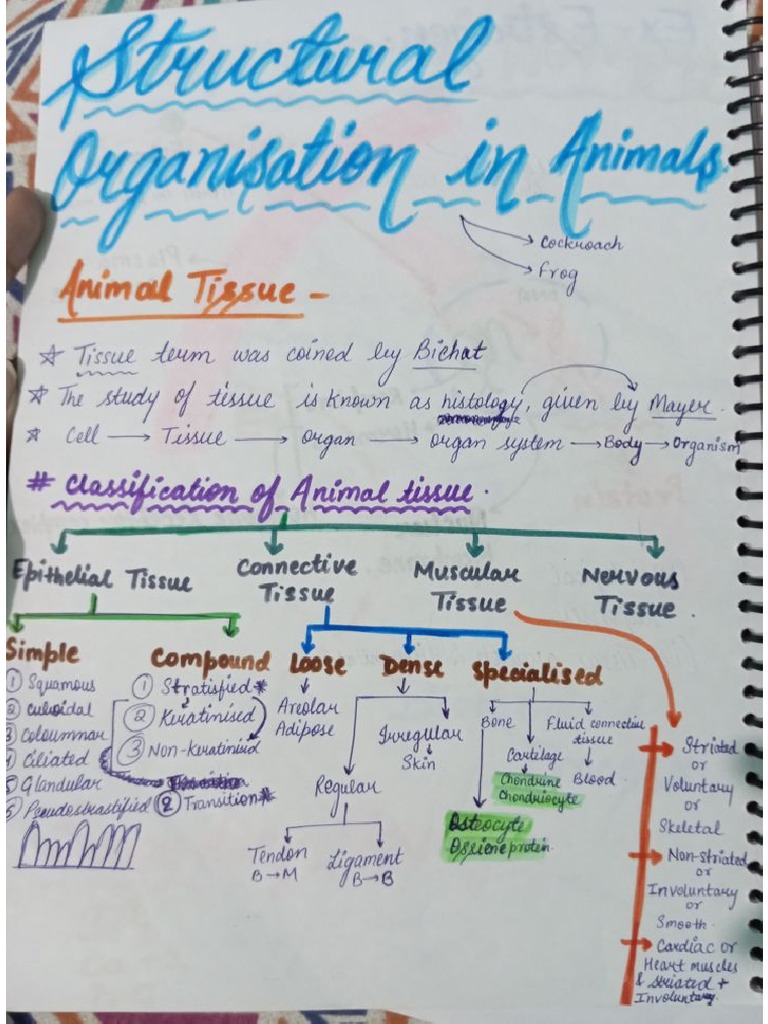 Structural
Organisation in Animals.
Cockroach
Frog
Animal Tissue -
Tissue term was coined by Bichat
The study of tissue is known as histology, given by Mayer.
Cell → Tissue → organ → organ system → Body → Organism
# Classification of Animal tissue.
Epithelial Tissue
Connective
Tissue
Muscular
Tissue
Nervous
Tissue.
Simple
① Squamous
② cuboidal
③ Coloumnar
④ Ciliated
⑤ Glandular
Pseudostrastified
Compound
① Stratified*
② Keratinised
③ Non-Keratinised
② Transition*
Loose
Areolar
Adipose
Dense
Irregular
Skin
Regular
Tendon
B→M
Ligament
B→B
Specialised
Bone
Osteocyte
Ossiene protein.
Cartilage
Chondrine
Chondriocyte
Fluid connective
tissue
Blood
Striated
or
Voluntary
or
Skeletal
Non-striated
or
Involuntary
or
Smooth.
Cardiac or
Heart muscles
& striated +
Involuntary.